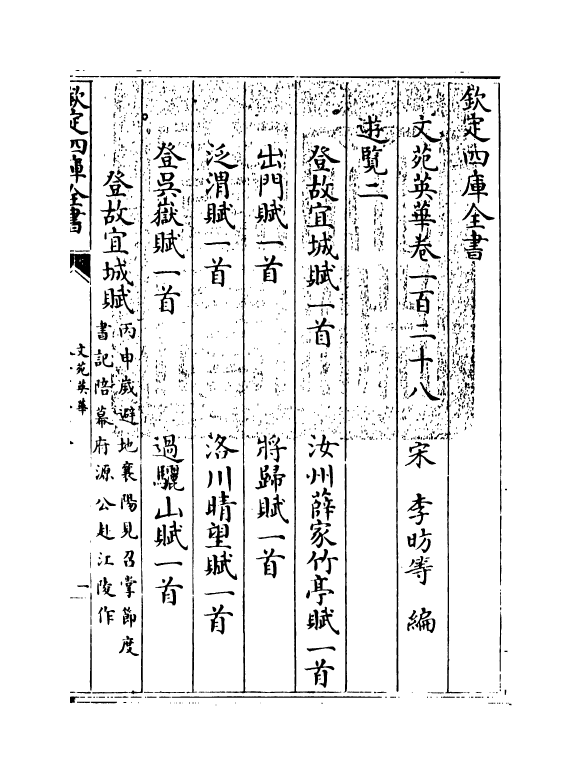 欽定四庫全書
文苑英華卷一百二十八
宋 李昉等 編
遊覽二
登故宜城賦一首
汝州薛家竹亭賦一首
出門賦一首
將歸賦一首
泛渭賦一首
洛川晴望賦一首
登吳嶽賦一首
過驪山賦一首
登故宜城賦
丙申歲避地襄陽見召掌節度
書記陪幕府源公赴江陵作
欽定四庫全書
文苑英華
一